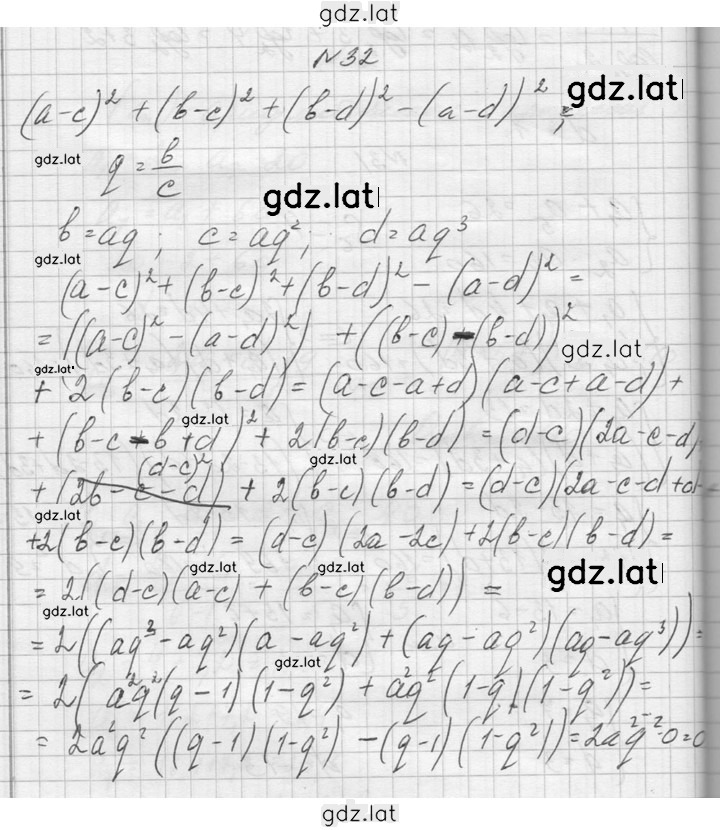 gdz.lat
N32
(a-c)² + (b-c)² + (b-d)² - (a-d)² ; gdz.lat
gdz.lat q = b/c
gdz.lat
b = aq ; c = aq² ; d = aq³
gdz.lat
(a-c)² + (b-c)² + (b-d)² - (a-d)² =
= ((a-c)² - (a-d)²) + ((b-c) - (b-d))²
gdz.lat
gdz.lat
+ 2(b-c)(b-d) = (a-c-a+d)(a-c+a-d) +
gdz.lat
+ (b-c-b+d)² + 2(b-c)(b-d) = (d-c)(2a-c-d)
(d-c)² gdz.lat
+ (2b-c-d) + 2(b-c)(b-d) = (d-c)(2a-c-d+d-
gdz.lat
+2(b-c)(b-d) = (d-c)(2a-2c) + 2(b-c)(b-d) =
gdz.lat gdz.lat gdz.lat
= 2((d-c)(a-c) + (b-c)(b-d)) =
gdz.lat
= 2((aq³-aq²)(a-aq²) + (aq-aq²)(aq-aq³)) =
gdz.lat
= 2(a²q²(q-1)(1-q²) + a²q²(1-q)(1-q²)) =
= 2a²q²((q-1)(1-q²) - (q-1)(1-q²)) = 2a²q²·0 = 0
gdz.lat